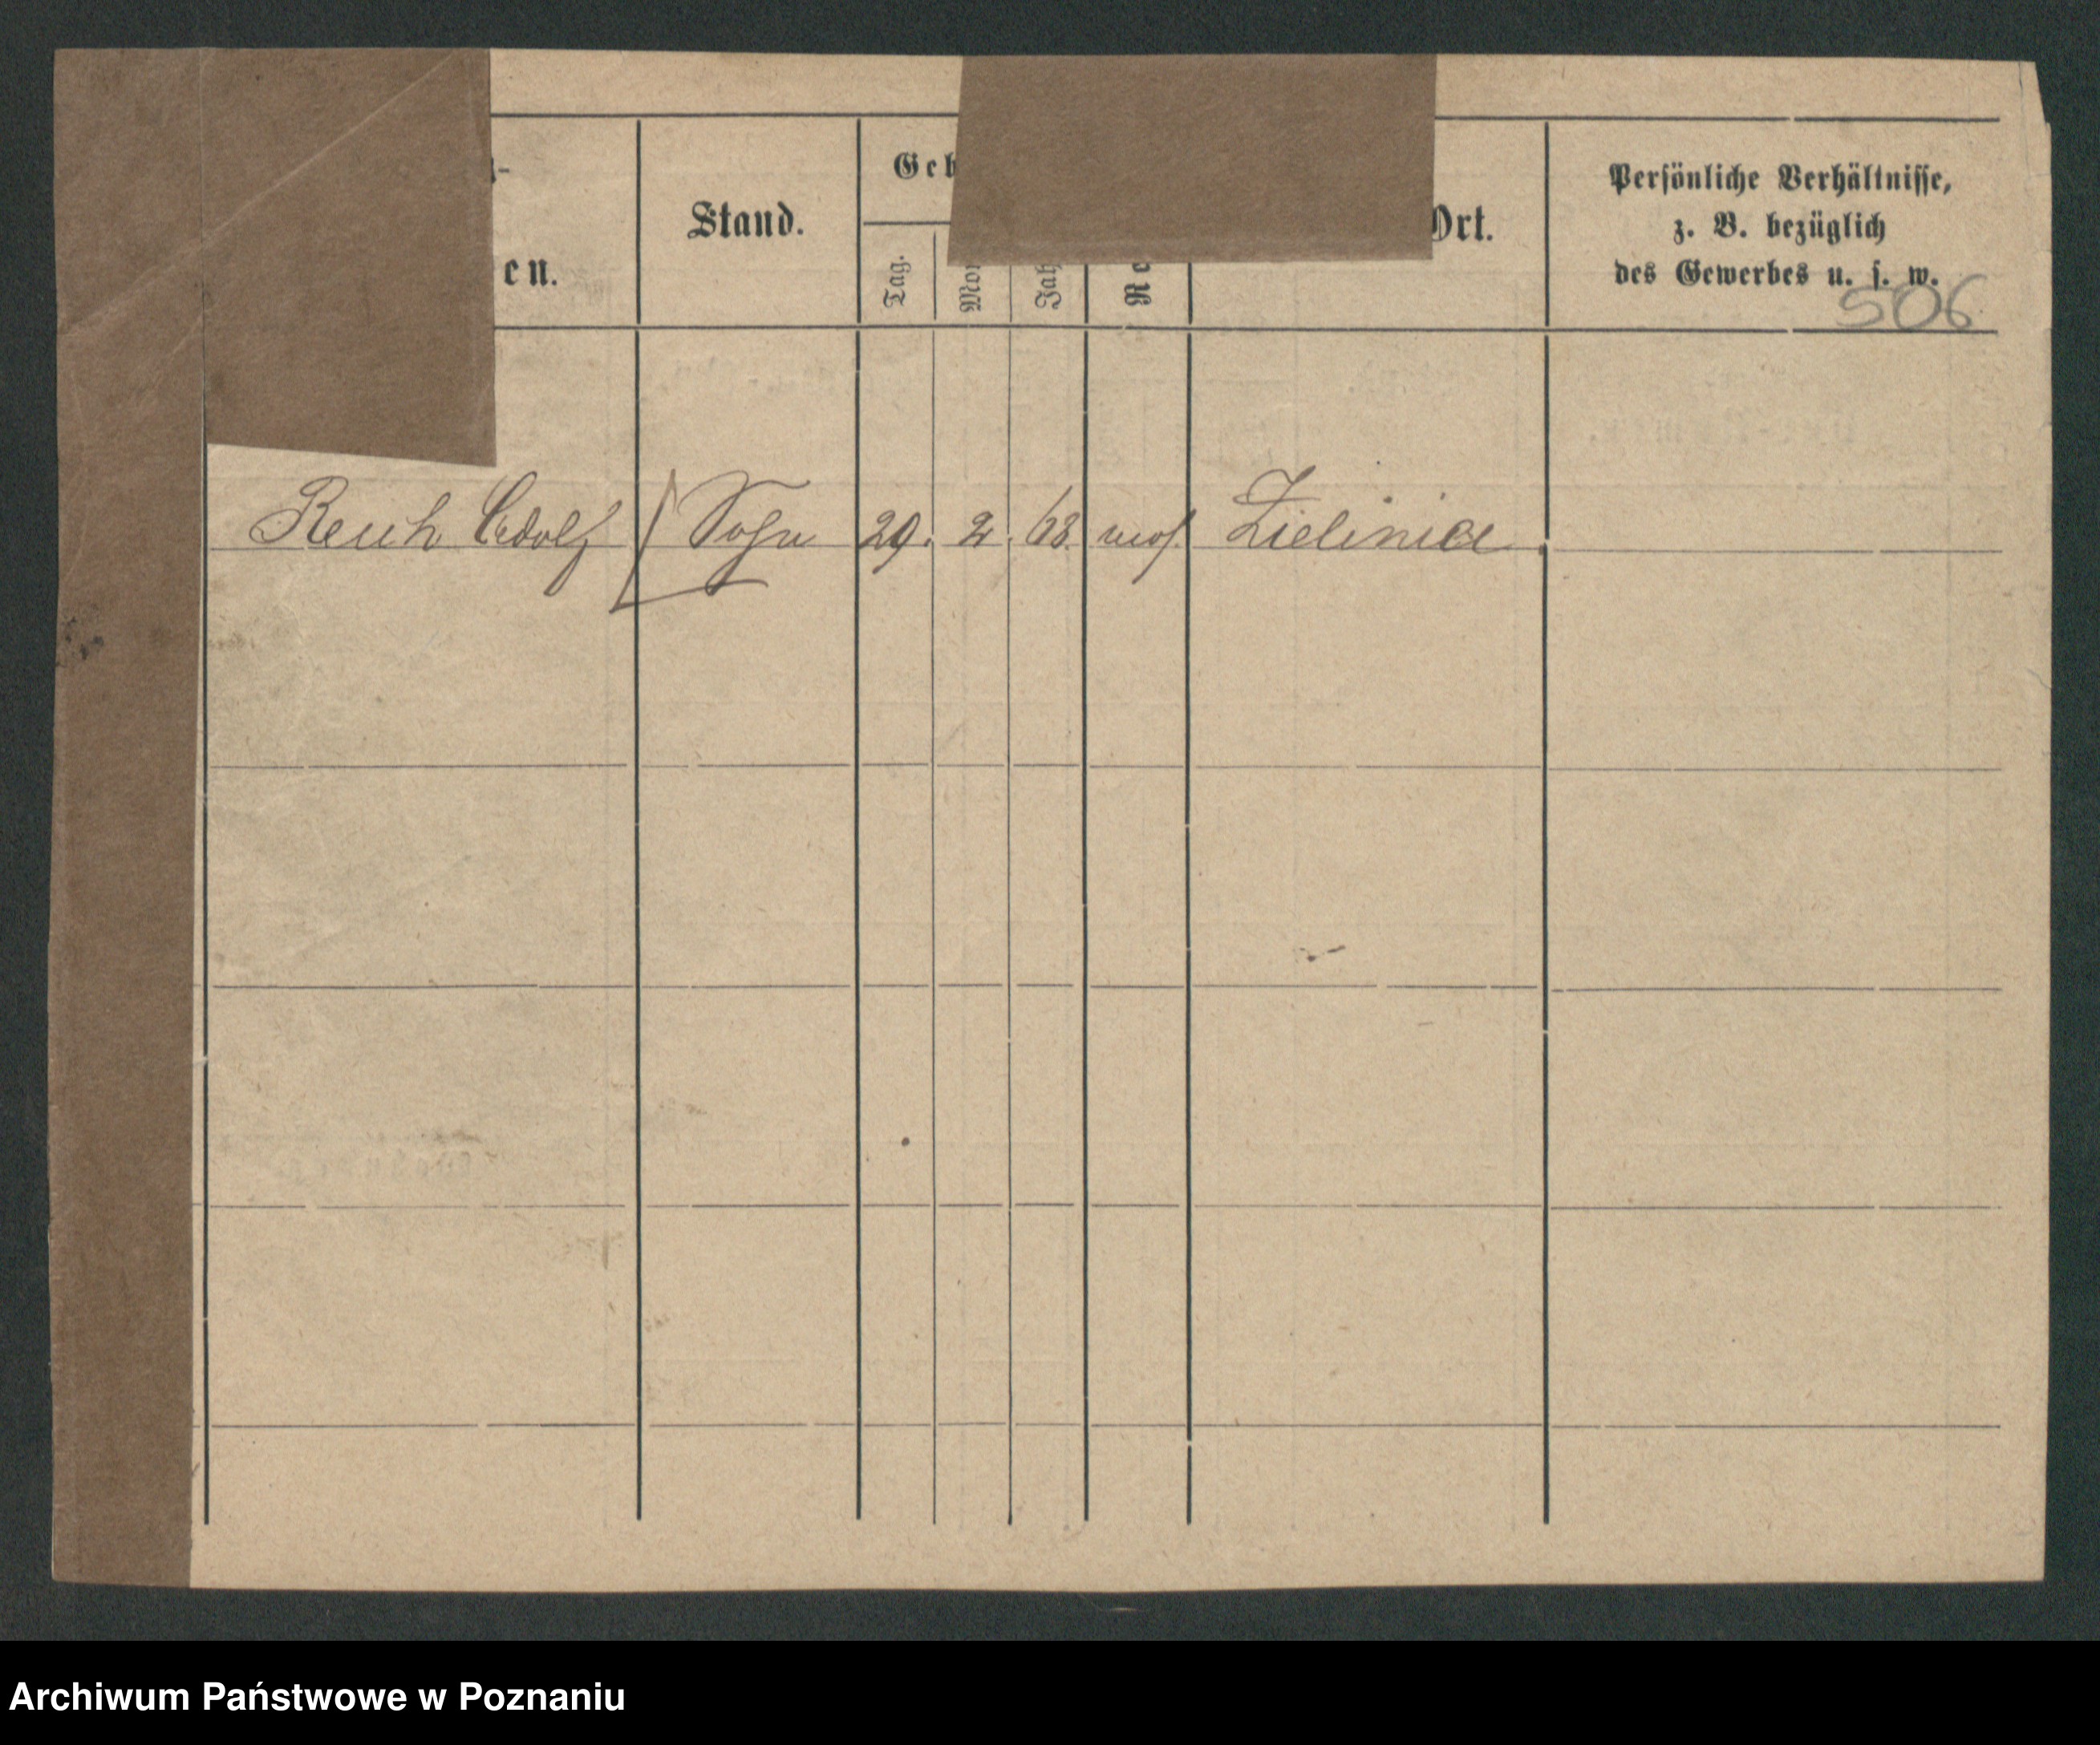 en.
Stand.
Geb
Tag.
Mon
Jah
Re
Ort.
Persönliche Verhältnisse,
z. B. bezüglich
des Gewerbes u. s. w.
506
Reich Adolf Sohn 29. 2. 68. mos. Zielinice
Archiwum Państwowe w Poznaniu